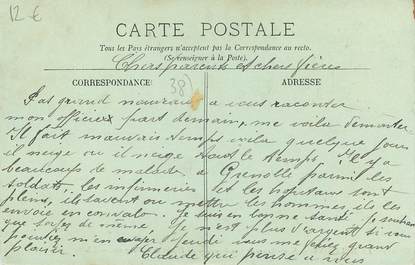 12 €
CARTE POSTALE
Tous les Pays étrangers n'acceptent pas la Correspondance au recto.
(Se renseigner à la Poste).
Chers parents et chers frères
CORRESPONDANCE
38)
ADRESSE
Pas grand nouveau a vous raconter
mon officieux part demain, me voila démonter
Il fait mauvais temps voila quelque jour
il neige ou il neige tout le temps. Il y a
beaucoups de malade a Grenoble parmil les
soldats, les infirmeries et les hopitaux sont
pleins, ils savent ou mettre les hommes, ils les
envoie en convalo. Je suis en bonne santé je
que de même. Je n'est plus d'argent si vous
pouviez m'en jeudi vous me grand
plaisir. Claude qui pense a vous